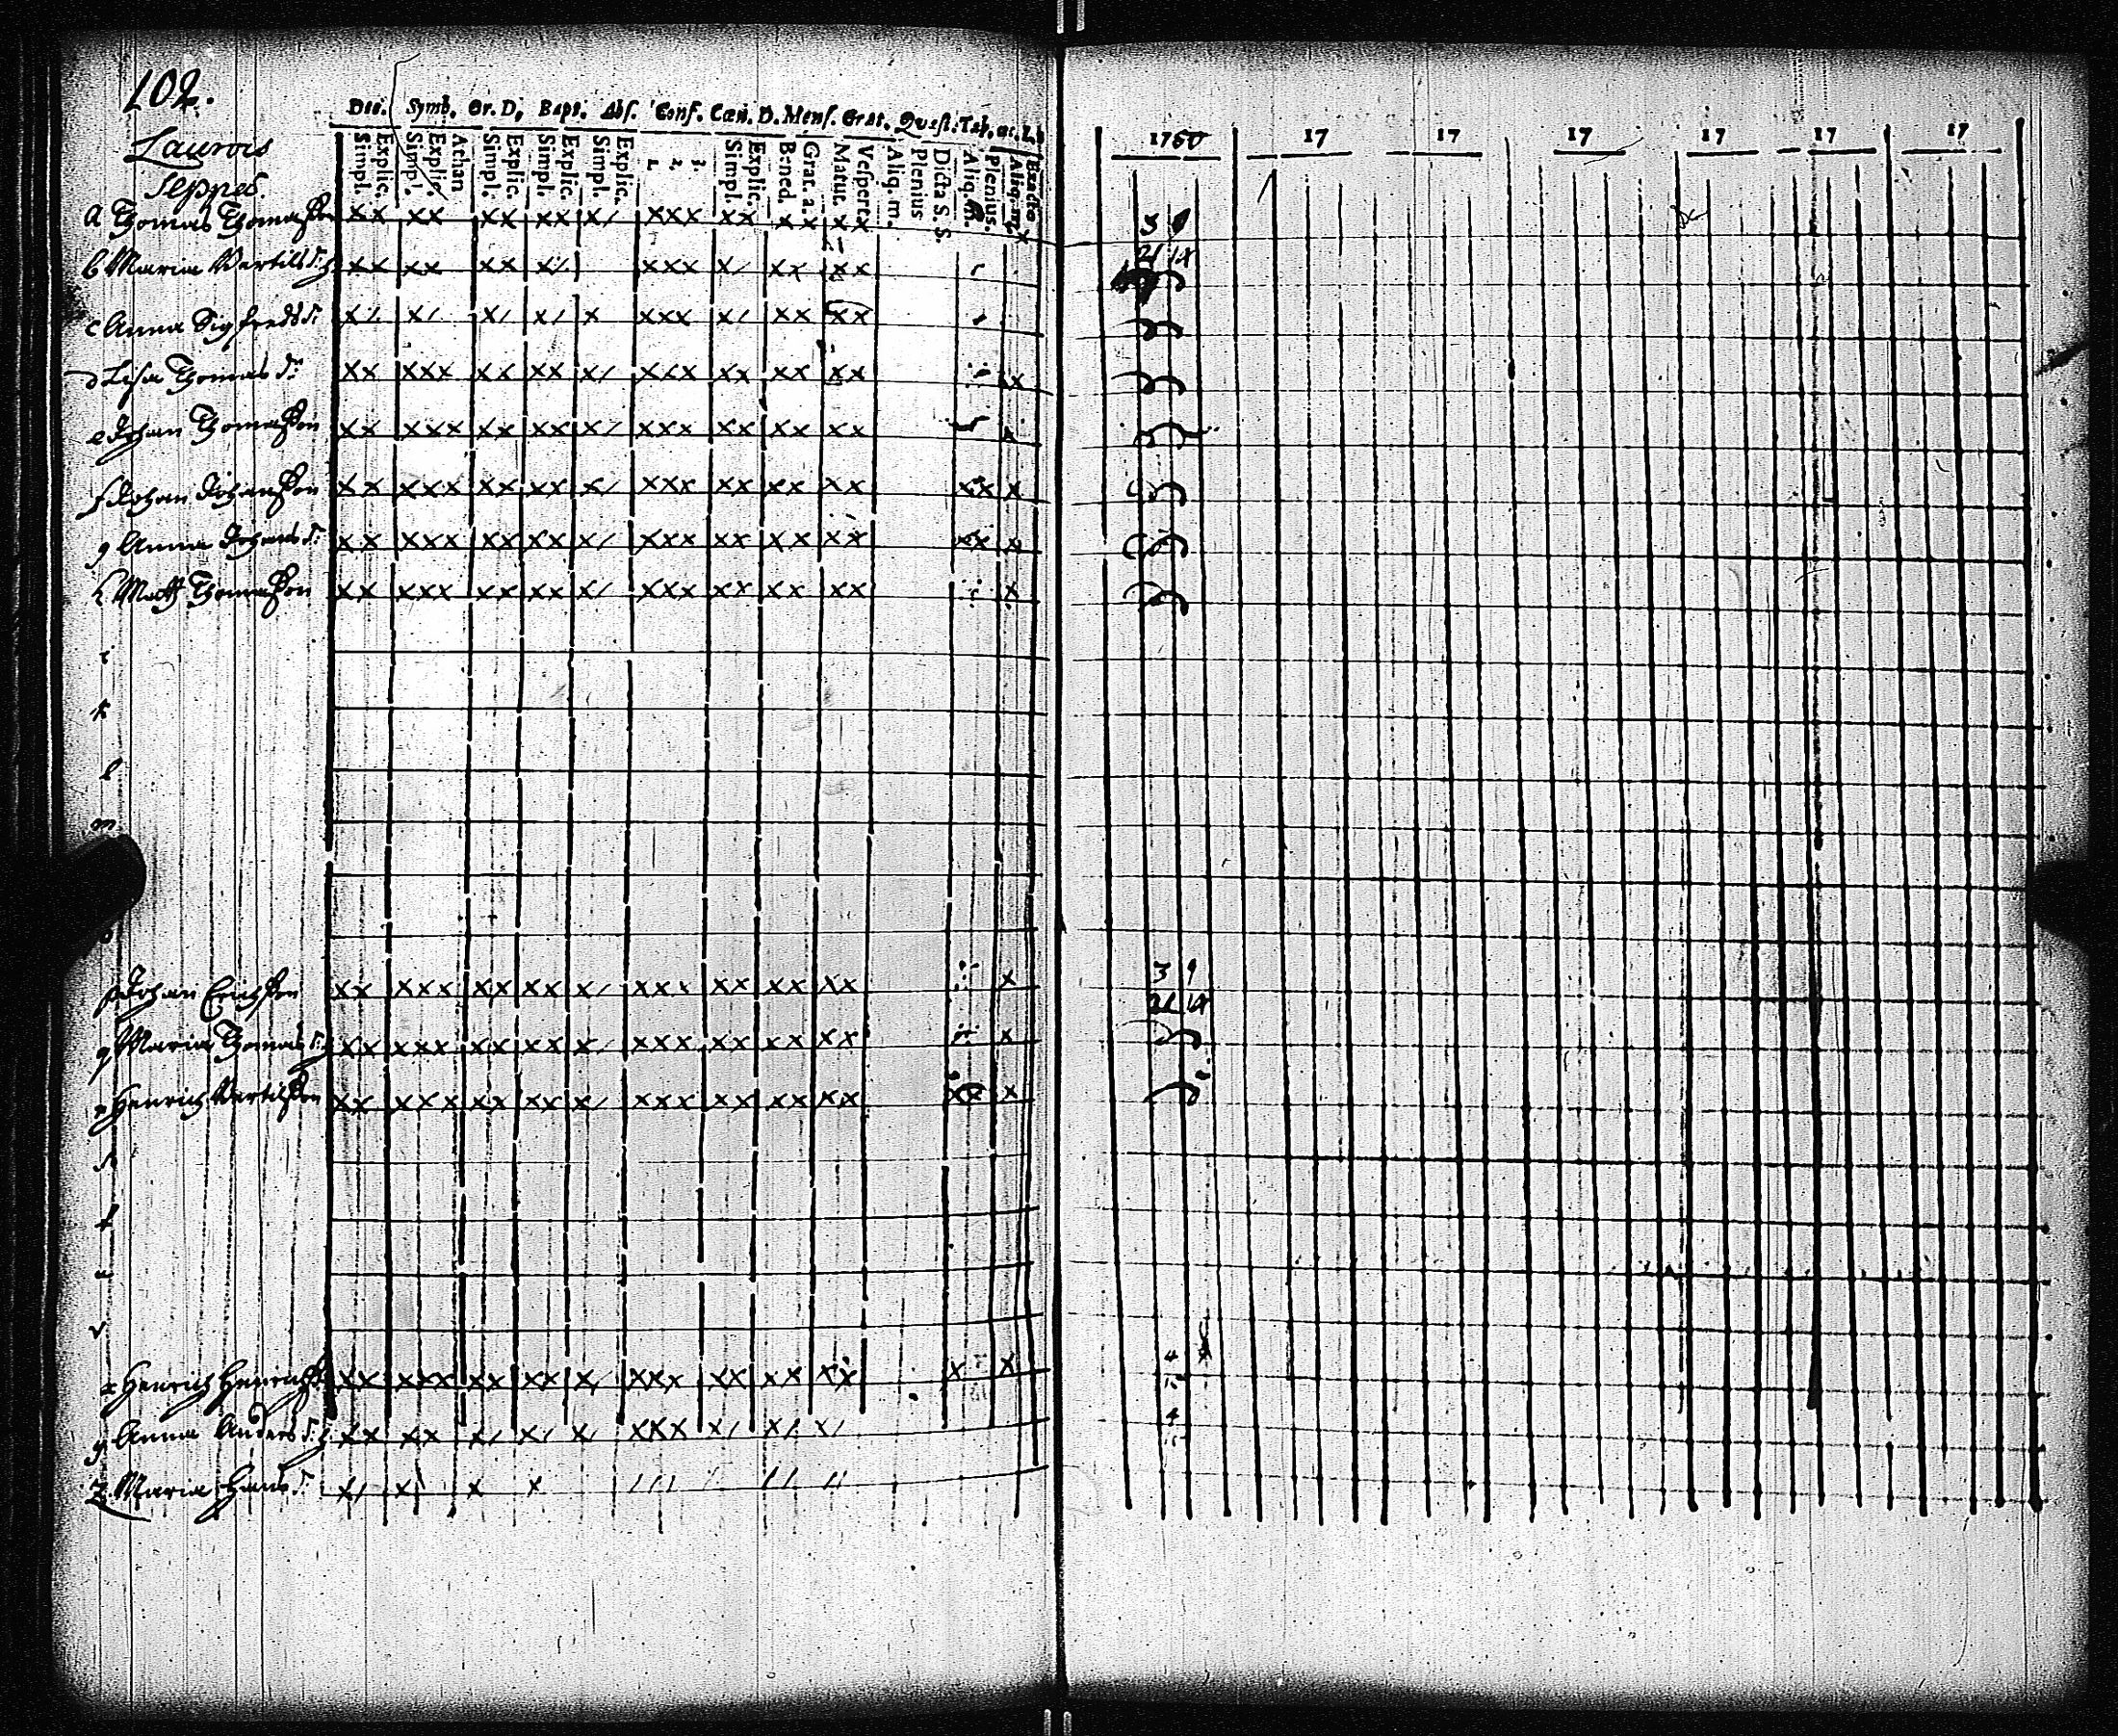 102.
Laurois
Seppres
Dec. Symb. Or. D. Bapt. Abs. Conf. Cœn. D. Mens. Grat. Quæst. Tab. œc.
Simpl. Explic. Simpl. Explic. Athan Simpl. Explic. Simpl. Explic. Simpl. Explic. 1. 2. 3. Simpl. Explic. Bened. Grat. a. Matut. Vespert. Aliq. m. Plenius Dicta S. S. Aliq. m. Plenius. Aliq. m. Exacte
1760 17 17 17 17 17 17
a Thomas Thomasson xx xx xx xx x/ xxx xx xx xx x 3
21 18
b Maria Bertils dr xx xx xx x/ xxx x/ xx xx
c Anna Sigfreds dr x/ x/ x/ x/ x xxx x/ xx xx
d Lisa Thomas dr xx xxx xx xx x/ xxx xx xx xx x
e Johan Thomasson xx xxx xx xx x/ xxx xx xx xx x
f Johan Johansson xx xxx xx xx x/ xxx xx xx xx xx x
g Anna Johans dr xx xxx xx xx x/ xxx xx xx xx xx x
h Matts Thomasson xx xxx xx xx x/ xxx xx xx xx x
i
k
l
m
p Johan Ericsson xx xxx xx xx x/ xxx xx xx xx x 3 9
21 18
q Maria Thomas dr xx xxx xx xx x/ xxx xx xx xx x
r Henrich Bertilsson xx xxx xx xx x/ xxx xx xx xx xx x
s
t
u
v
x Henrich Henrichss xx xxx xx xx x/ xxx xx xx xx x x 4
y Anna Anders dr xx xx x/ x/ x/ xxx x/ x/ x/ 4
z Maria Hans dr x/ x/ x x /// // //